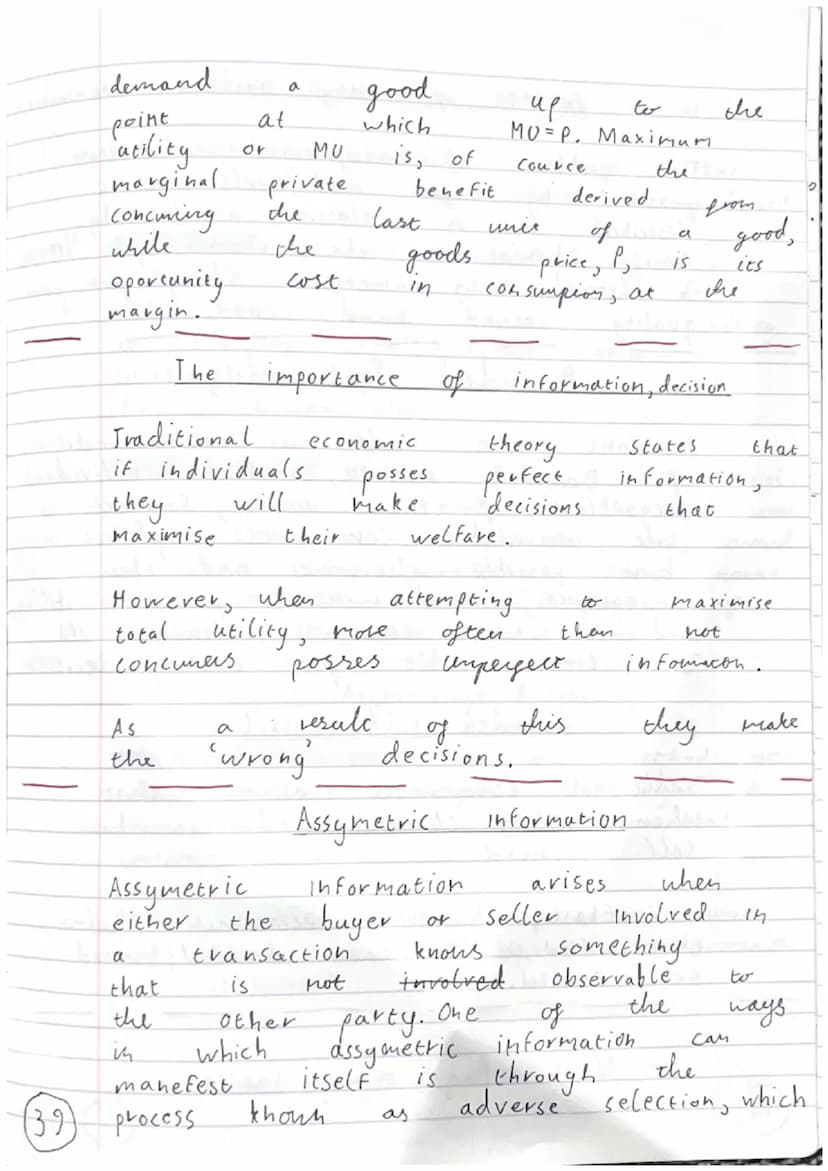 demand a good up to the
point at which MU=P. Maximum
utility or MU is, of cource the
marginal private benefit derived from
concuming the last unit of a good,
while the goods price, P, is its
oportunity cost in consumpion, at the
margin.
The importance of information, decision
Traditional economic theory states that
if individuals posses perfect information,
they will make decisions that
maximise their welfare.
However, when attempting to maximise
total utility, more often than not
concumers posses imperfect infomation.
As a result of this they make
the 'wrong' decisions.
Assymetric information
Assymetric information arises when
either the buyer or seller involved in
a transaction knows something
that is not involved observable to
the other party. One of the ways
in which assymetric information can
manefest itself is through the
process known as adverse selection, which
39